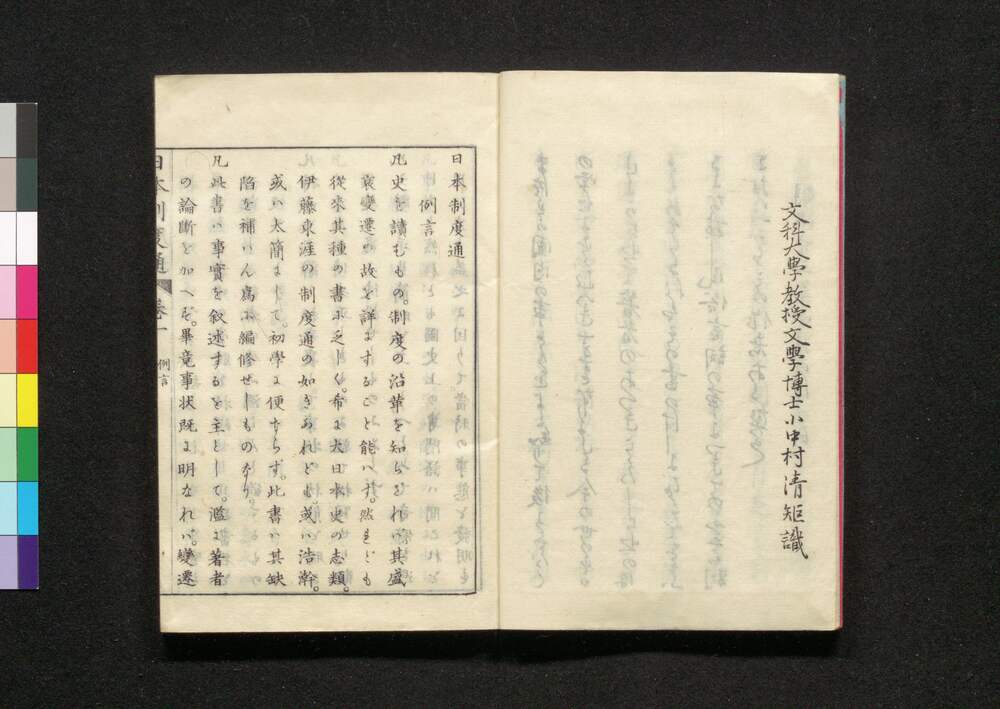 文科大學教授文學博士小中村清矩識
日本制度通
例言
凡史を讀むもの。制度の沿革を知らざれバ其盛
衰變遷の故を詳にすること能ハず。然れども
從來其種の書に乏しく。希に大日本史の志類。
伊藤東涯の制度通の如きあれども。或ハ浩澣。
或ハ太簡にして。初學に便ならず。此書ハ其缺
陷を補ハん爲に編修せしものなり。
凡此書ハ事實を敘述するを主として。濫に著者
の論斷を加へず。畢竟事状既に明なれバ。變遷
日本制度通 卷一 例言